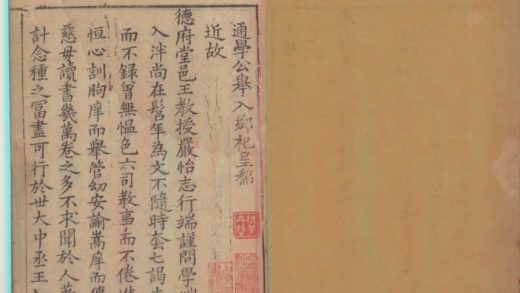 通學公舉入鄉祀呈
近故
德府堂邑王教授嚴怡志行端謹問學
入泮尚在髫年為文不隨時套七謁
而不録曾無愠色六司教事而不倦
恒心訓朐庠而舉管幼安諭嵩庠而傳
慈毋讀書幾萬卷之多不求聞於人
計念種之富盡可行於世大中丞王